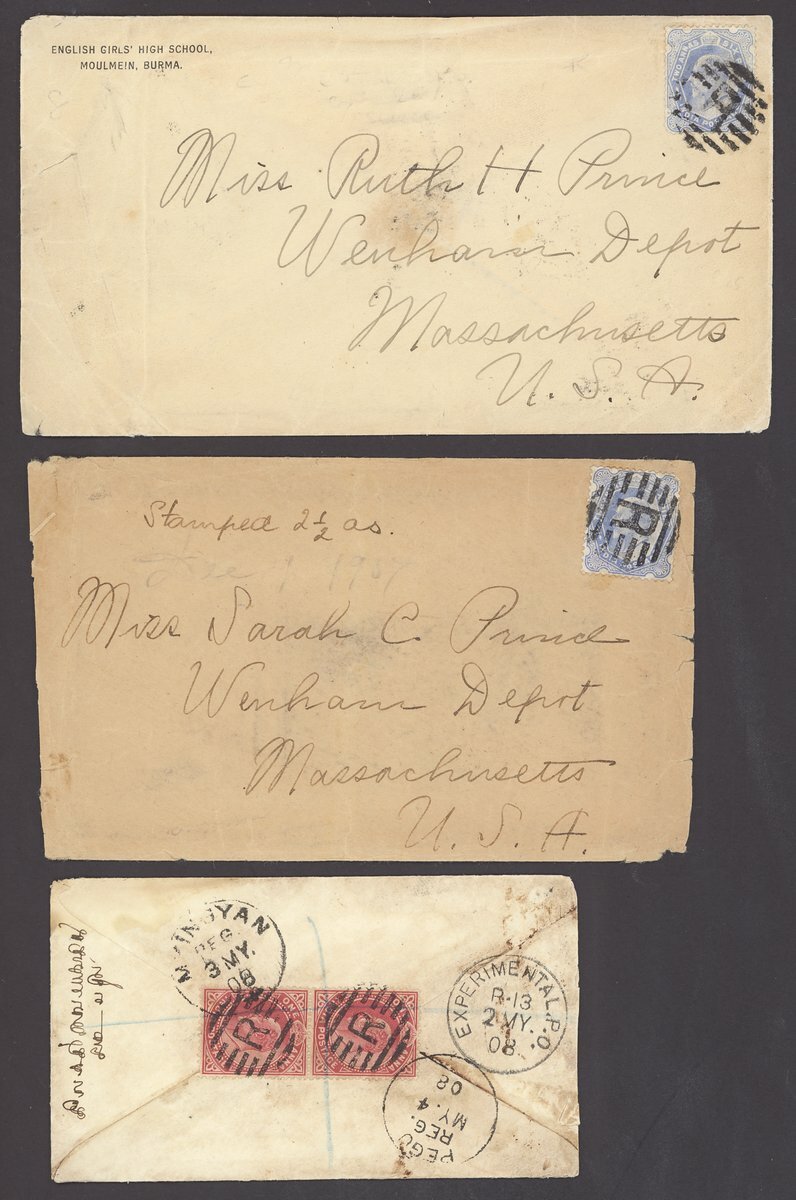 ENGLISH GIRLS' HIGH SCHOOL,
MOULMEIN, BURMA.
TWO ANNAS SIX
Miss Ruth H Prince
Wenham Depot
Massachusetts
U. S. A.
Stamped 2½ as.
R
1907
Miss Sarah C. Prince
Wenham Depot
Massachusetts
U. S. A.
MYINGYAN
REG.
3 MY.
08
R
R
ONE
POSTAGE
EXPERIMENTAL P.O.
R-13
2 MY.
08
PEGU
REG.
MY. 4
08